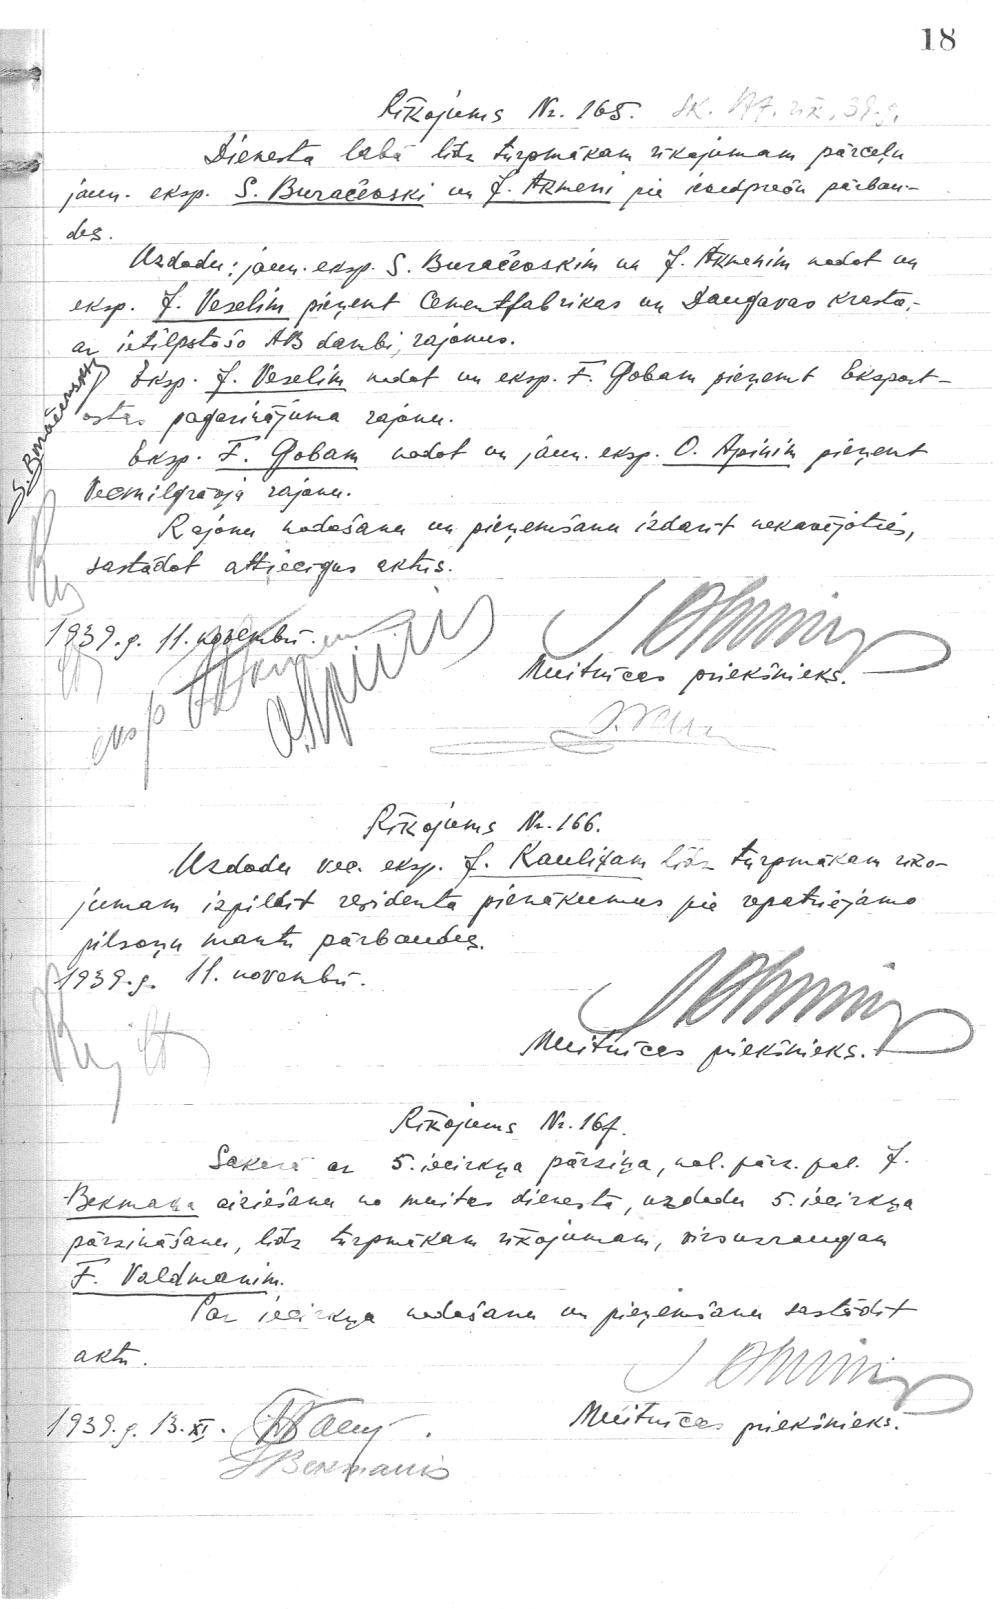 18
Rīkojums Nr. 165. sk. 177. rīk. 39.g.
Dienesta labā līdz turpmākam rīkojumam pārceļu
jaun. eksp. S. Buračevski un J. Akmeni pie ievedpreču pārbau-
des.
Uzdodu: jaun. eksp. S. Buračevskim un J. Akmenim nodot un
eksp. J. Veselim pieņemt Cementfabrikas un Daugavas krasta,
ar ietilpstošo AB dambi, rajonus.
Eksp. J. Veselim nodot un eksp. F. Gobam pieņemt Eksport-
ostas pagarinājuma rajonu.
S. Buračevskis
Eksp. F. Gobam nodot un jaun. eksp. O. Apinim pieņemt
Vecmilgrāvja rajonu.
Rajonu nodošanu un pieņemšanu izdarīt nekavējoties,
sastādot attiecīgus aktus.
1939.g. 11. novembrī.
Muitnīcas priekšnieks.
eksp
O. Apinis
Rīkojums Nr. 166.
Uzdodu vec. eksp. J. Kauliņam līdz turpmākam rīko-
jumam izpildīt rezidenta pienākumus pie repatriējamo
pilsoņu mantu pārbaudes.
1939.g. 11. novembrī.
Muitnīcas priekšnieks.
Rīkojums Nr. 167.
Sakarā ar 5. iecirkņa pārziņa, nod. pārz. pal. J.
Bekmaņa aiziešanu no muitas dienesta, uzdodu 5. iecirkņa
pārzināšanu, līdz turpmākam rīkojumam, virsuzraugam
F. Valdmanim.
Par iecirkņa nodošanu un pieņemšanu sastādīt
aktu.
1939.g. 13. XI.
Muitnīcas priekšnieks.
J Bekmanis